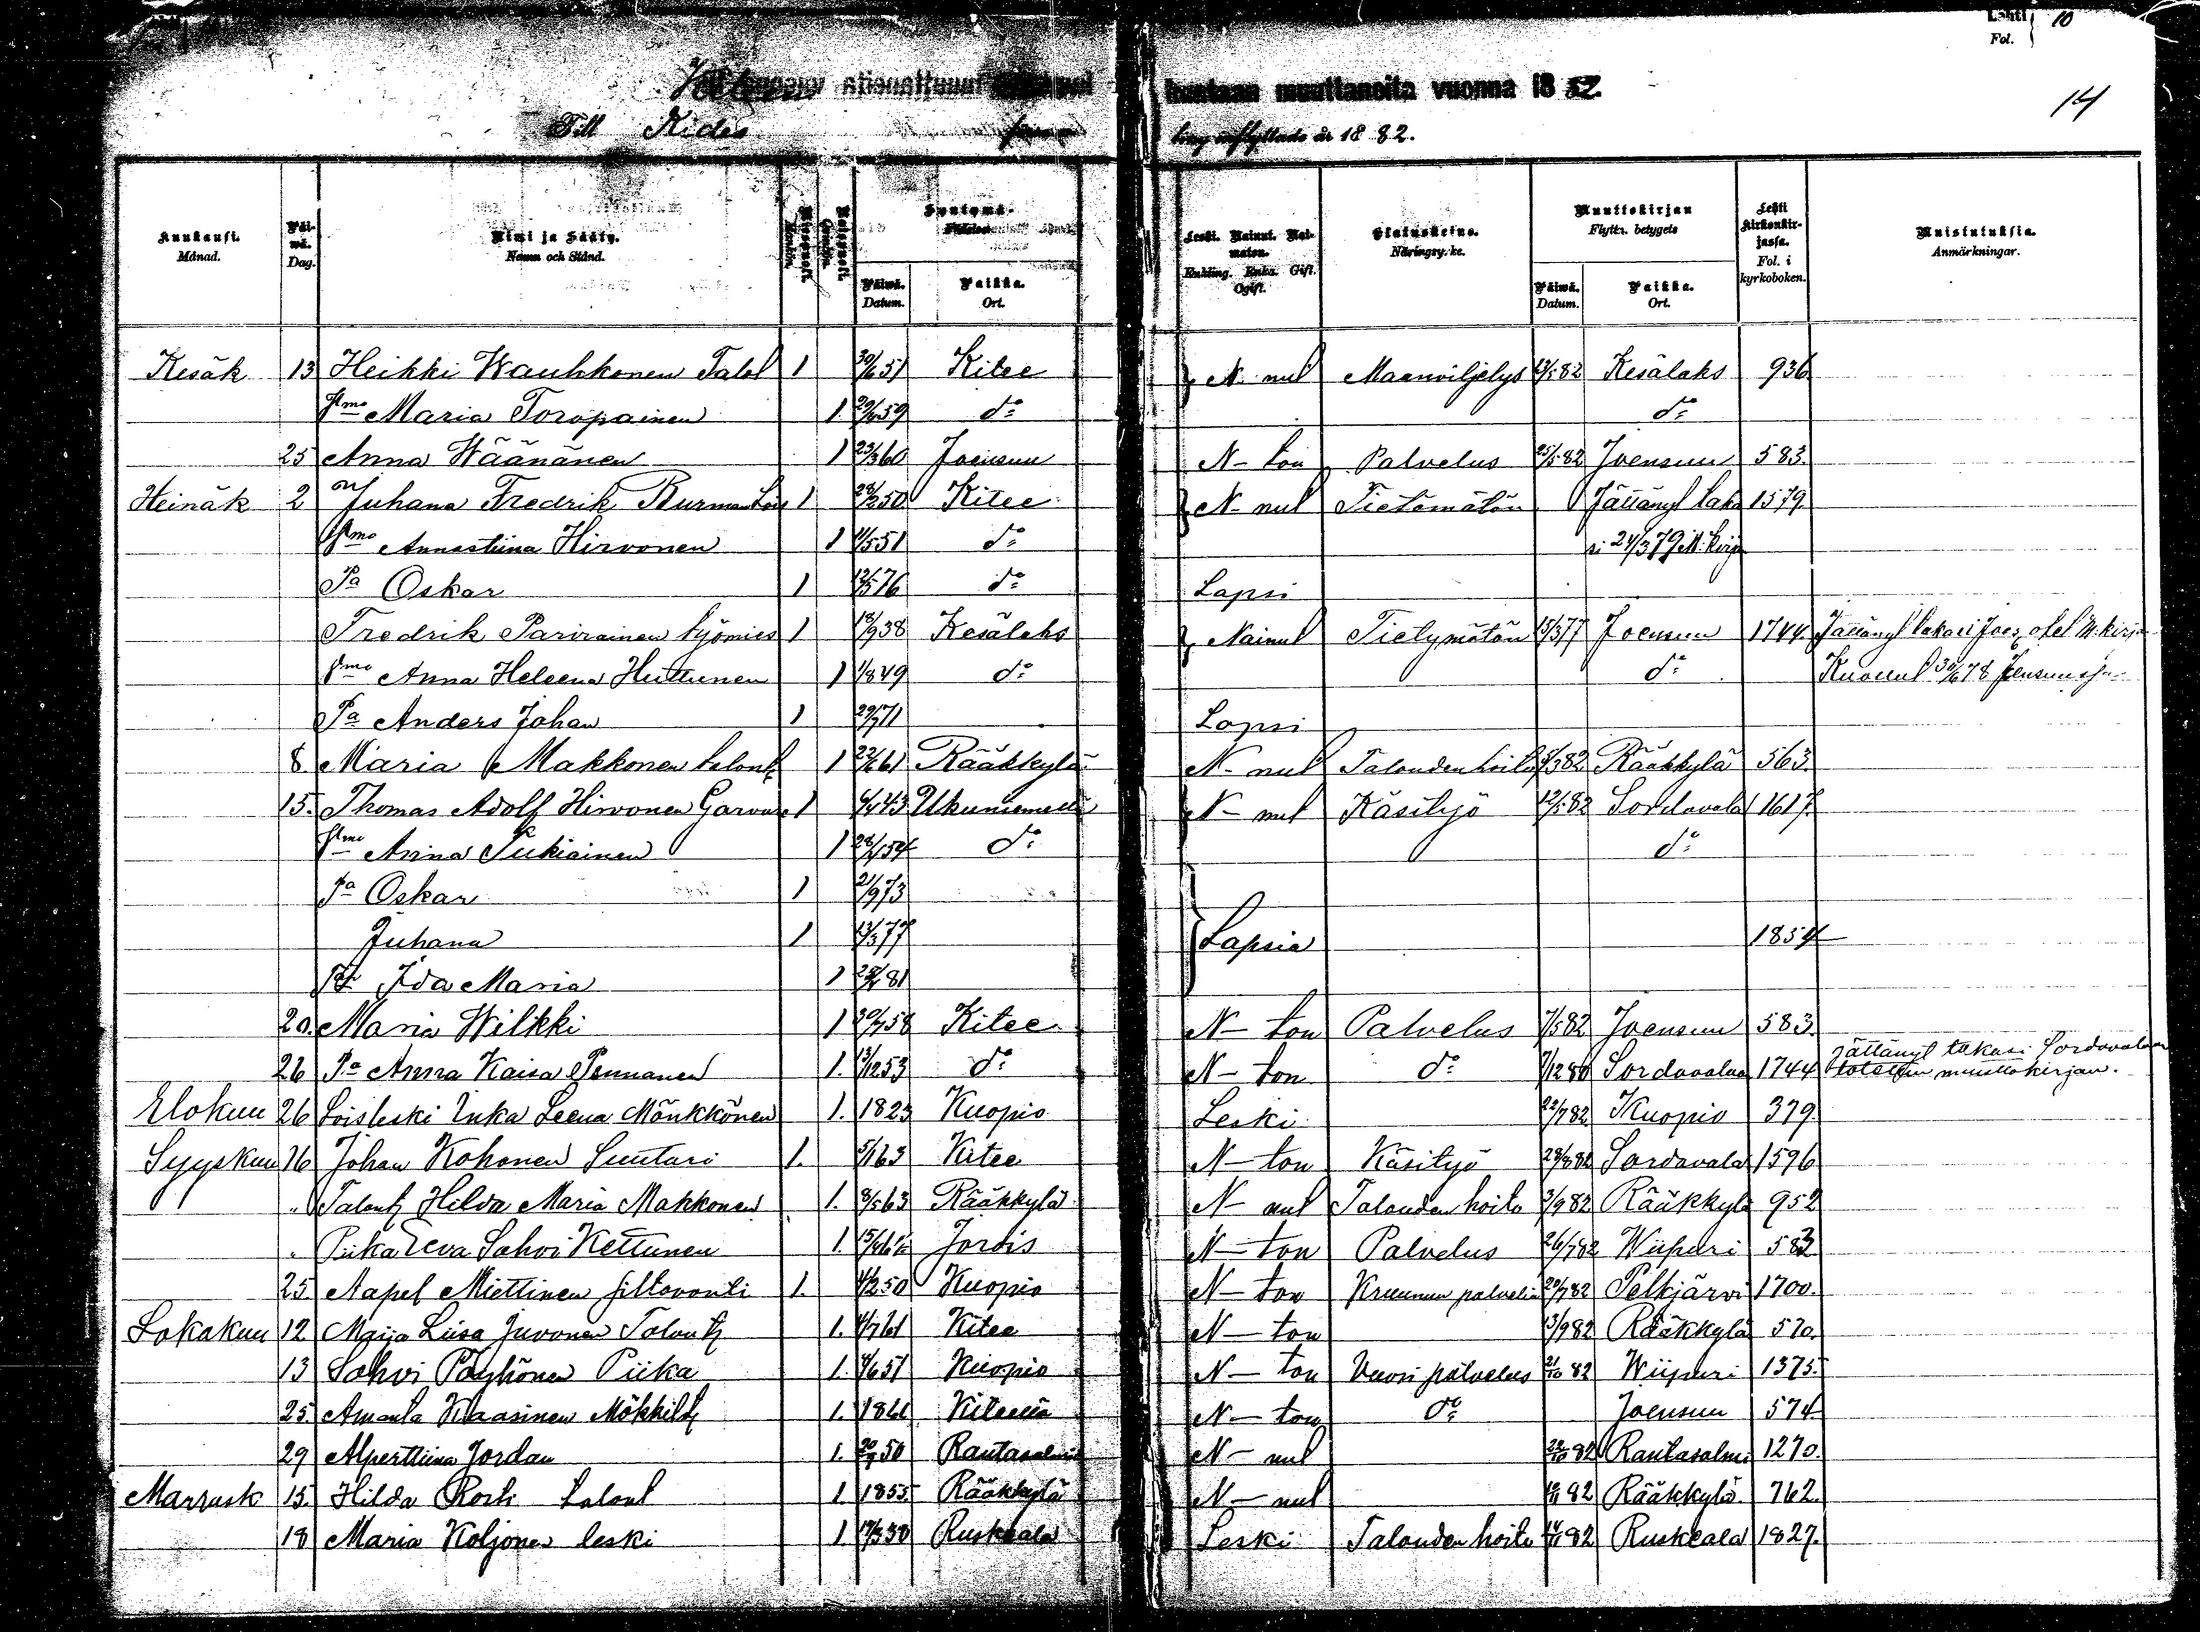 Lehti 10
Fol.
14
kuntaan muuttanoita vuonna 1882.
Till Kides
år 1882.
Kuukausi. Månad.
Päivä. Dag.
Nimi ja Sääty. Namn och Stånd.
Miespuoli. Mankön.
Vaispuoli. Qvinkön.
Syntymä-
Päivä. Datum.
Paikka. Ort.
Leski. Nainut. Naimaton. Enkling. Enka. Gift. Ogift.
Elatuskeino. Näringsgr. ke.
Muuttokirjan Flyttn. betygets
Päivä. Datum.
Paikka. Ort.
Lehti kirkonkirjassa. Fol. i kyrkoboken.
Muistutuksia. Anmärkningar.
Kesäk 13 Heikki Wauhkonen Talol 1 30/6 51 Kitee N- nul Maanviljelys 13/5 82 Kesälaks 936
Maria Toropainen 1. 29/6 59 do do
25 Anna Wäänänen 1 23/3 60 Joensuu N- ton Palvelus 25/5 82 Joensuu 583.
Heinäk 2 Juhana Fredrik Burman 1 28/2 50 Kitee N- nul Tietämätön Jättänyt taka 1579.
Annastiina Hirvonen 1 4/5 51 do si 24/3 79 M.kirja
Pa Oskar 1 12/5 76 do Lapsi
Fredrik Parirainen työmies 1 18/9 38 Kesälaks Nainul Tietymätön 15/3 77 Joensuu 1744. Jättänyt takasi Joes. otel M.kirja
Anna Heleena Huttunen 1 1/8 49 do do Kuollut 30/6 78
Pa Anders Johan 1 29/7 71 Lapsi
8 Maria Makkonen talont 1 22/6 61 Rääkkylä N- nul Taloudenhoito 5/3 82 Rääkkylä 563.
15. Thomas Adolf Hirvonen Garvare 1 6/4 43 Ukuniemellä N- nul Käsityö 12/5 82 Sordavala 1617.
Anna Sukiainen 1 28/1 54 do do
Pa Oskar 1 21/9 73
Juhana 1 13/3 77 Lapsia 1854
Ida Maria 1 81
20. Maria Wilkki 1 30/7 58 Kitee N- ton Palvelus 7/5 82 Joensuu 583.
26 Pa Anna Kaisa Pennanen 1. 13/12 53 do N- ton do 7/12 80 Sordavalaa 1744 jättänyt takasi Sordavalaan
muuttokirjan.
Elokuu 26 Loisleski Inka Leena Mönkkönen 1. 1823 Kuopio Leski 22/7 82 Kuopio 379.
Syyskuu 16 Johan Kohonen Suutari 1. 5/1 63 Kitee N- ton Käsityö 28/8 82 Sordavala 1596
" Talont Hilda Maria Makkonen 1. 8/5 63 Rääkkylä N- nul Talouden hoito 3/9 82 Rääkkylä 952
" Piika Eeva Sohvi Kettunen 1. Jorois N- ton Palvelus 26/7 82 Wiipuri 583
25. Aapel Miettinen siltovouti 1. 4/2 50 Kuopio N- ton Kruunun palvelia 20/7 82 Pelkjärvi 1700.
Lokakuu 12 Maija Liisa Juvonen Talont 1. 4/7 61 Kitee N- ton 3/9 82 Rääkkylä 570.
13 Sohvi Pöyhönen Piika 1. 4/6 51 Kuopio N- ton Vuosi palvelus 2/10 82 Wiipuri 1375.
25. Amanta Kaasinen Mökkilt 1. 1861 Kiteellä N- ton do Joensuu 574
29 Alperttiina Jordan 1. 50 Rantasalmi N- nul 22/10 82 Rantasalmi 1270.
Marrask 15. Hilda Rosk talont 1. 1855 Rääkkylä N- nul 82 Rääkkylä. 762.
18 Maria Koljonen leski 1. 30 Ruskeala Leski Talouden hoito 82 Ruskeala 1827.